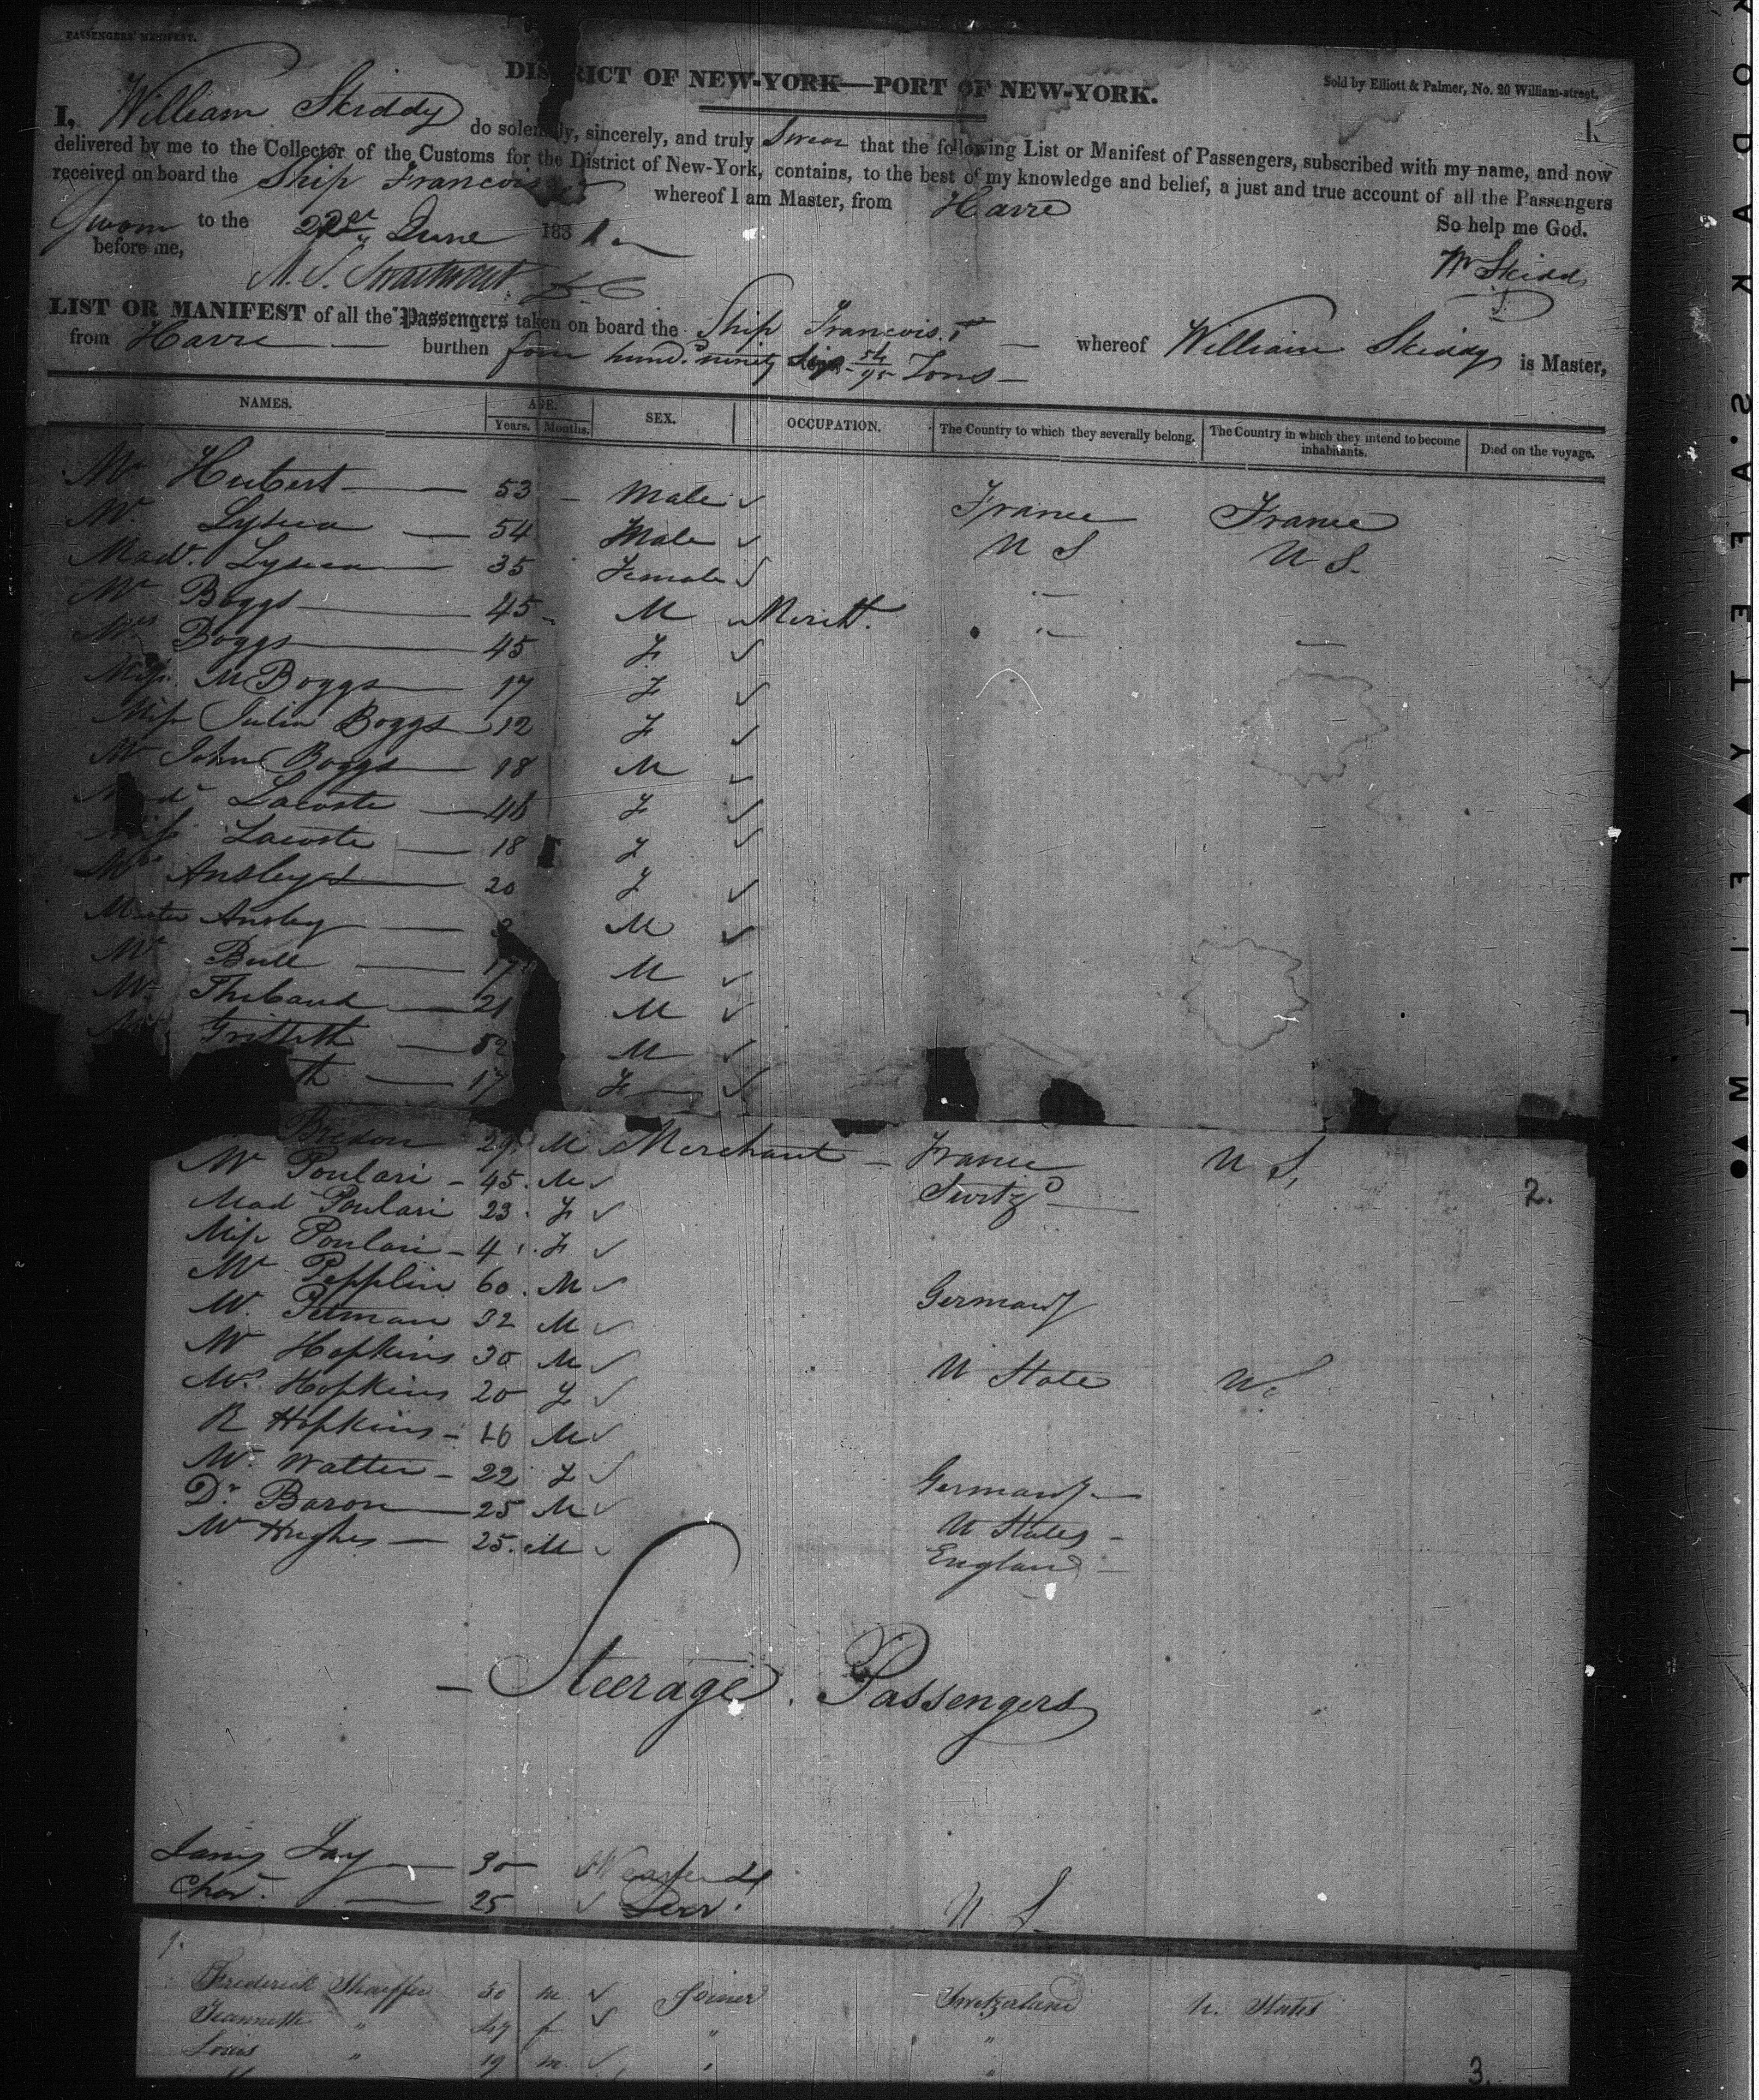 PASSENGERS' MANIFEST.
DISTRICT OF NEW-YORK—PORT OF NEW-YORK.
Sold by Elliott & Palmer, No. 20 William-street.
1.
I, William Skiddy do solemnly, sincerely, and truly Swear that the following List or Manifest of Passengers, subscribed with my name, and now
delivered by me to the Collector of the Customs for the District of New-York, contains, to the best of my knowledge and belief, a just and true account of all the Passengers
received on board the Ship Francois whereof I am Master, from Havre
So help me God.
Sworn to the June 183
before me,
Wm Skiddy
LIST OR MANIFEST of all the Passengers taken on board the Ship Francois. 1st whereof William Skiddy is Master,
from Havre burthen four hund. ninety 54/95 Tons
NAMES. AGE. SEX. OCCUPATION. The Country to which they severally belong. The Country in which they intend to become inhabitants. Died on the voyage.
Years. Months.
Mr Hubert 53 Male France France
Mr 54 Male U S U S.
Madr. 35 Female "
Mr Boggs 45 M "
Mrs Boggs 45 F
Miss M Boggs 17 F
Miss Julia Boggs 12 F
Mr John Boggs 18 M
Lacoste F
Miss Lacoste 18 F
Mrs Ansley 20 F
Master Ansley M
Mr Bull 17 M
Mr Thibaud 21 M
Griffith 52 M
th 17 F
Bredon 29. M Merchant France U S,
Mr Poulari 45. M Switzd
2.
Mad Poulari 23. F
Miss Poulari 4. F
Mr Pepplin 60. M Germany
Mr. Pitman 32 M
Mr Hopkins 30 M U State U.
Mrs Hopkins 20 F
R Hopkins 16 M
Mr. Walter 22 F Germany
Dr Baron 25 M U States
Mr Hughes 25. M England
Steerage Passengers
Lay 30
Chas. 25 U S
1.
Frederick Shaeffer 50 m. Joiner Switzerland U. States
Jeannette " 47 f " "
Louis " 19 m. " "
3.